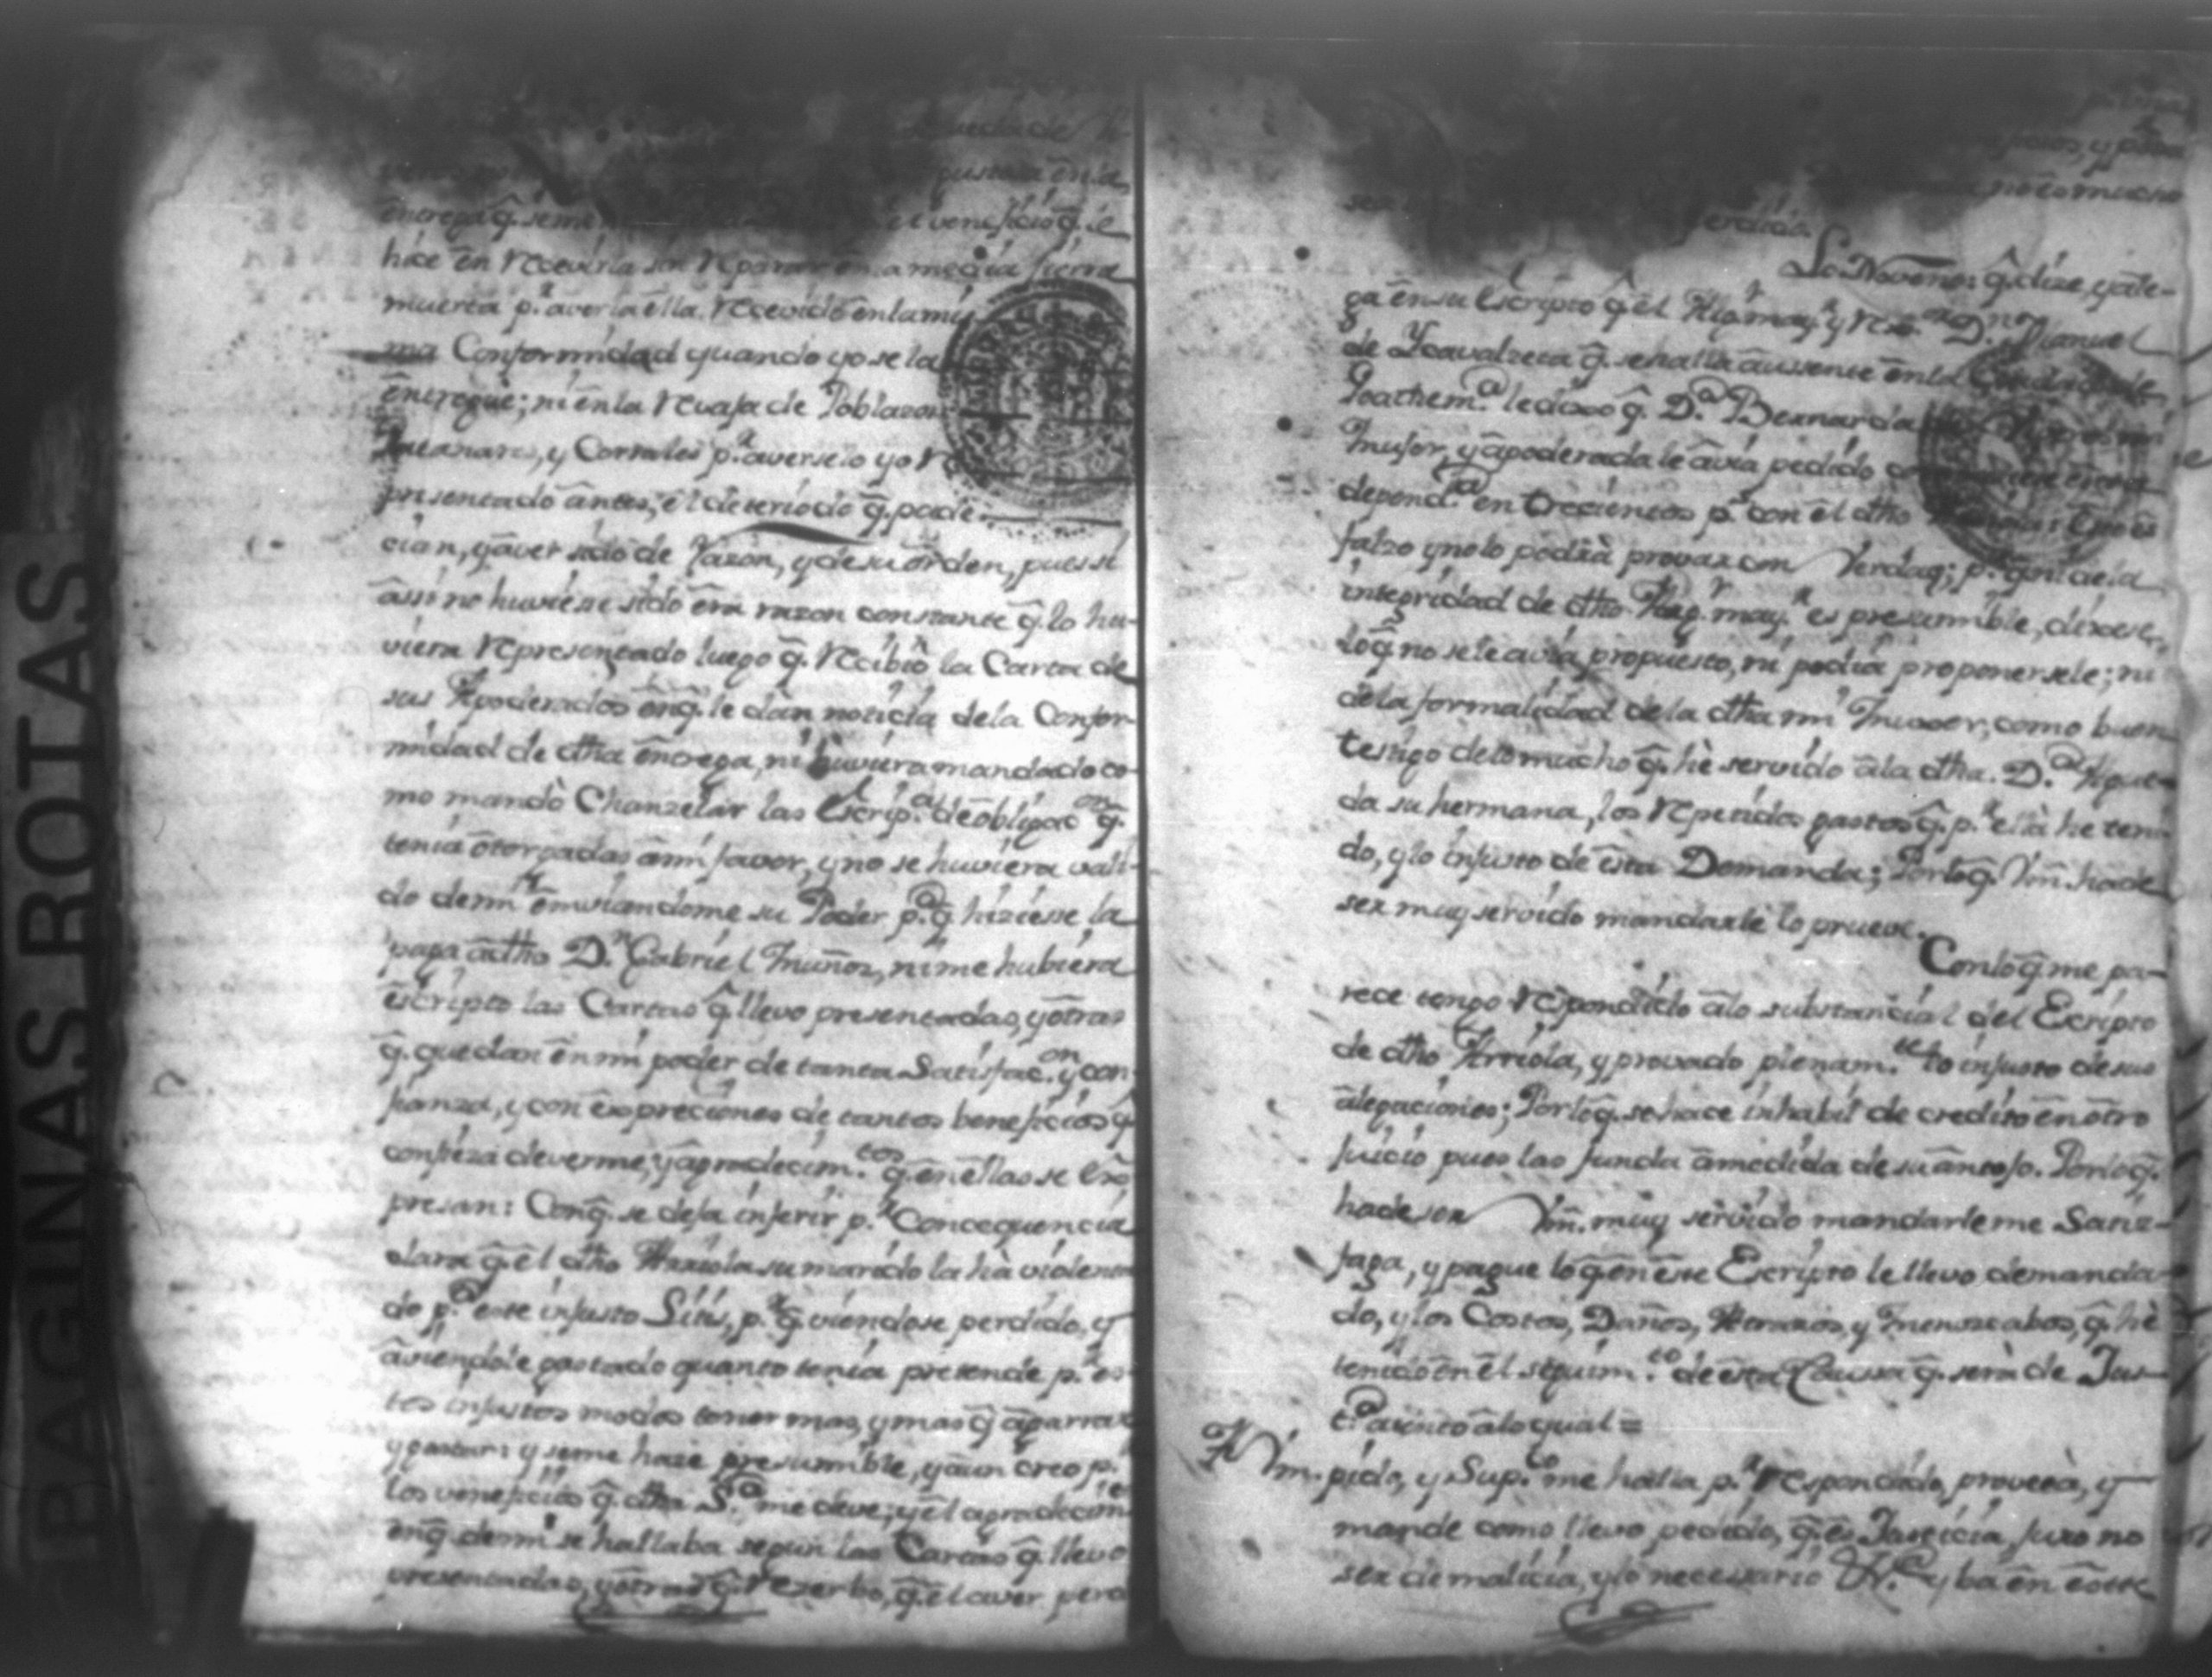 PAGINAS ROTAS
hice en recevirla sin reparar en la media sierra
muerta p.r averla ella recevido en la mis
ma Conformidad quando yo se la
entregue; ni en la revaja de Poblazon
y Corrales p.r averselo yo re
presentado antes, el deteriodo q̂. pade
cian, y aver sido de razon, y de su orden, pues si
assi no huviese sido era razon constante q̂. lo hu-
viera representado luego q̂. recibiò la Carta de
sus Apoderados en q̂. le dan noticia dela Confor-
midad de dha entrega, ni huviera mandado co-
mo mandò Chanzelar las Escrip.as de obligac.on q̂.
tenia otorgadas a mi favor, y no se huviera vali-
do de mi embiandome su Poder p.a q̂ hiziese la
paga a dho D.n Gabriel Muños, ni me hubiera
escripto las Cartas q̂ llevo presentadas, y otras
q̂. quedan en mi poder de tanta Satisfac.on y con-
fianza, y con expreciones de tantos beneficios q̂
confieza deverme; y agradecim.tos q̂. en ellas se ex-
presan: Con q̂. se deja inferir p.r Concequencia
clara q̂ el dho Arriola su marido la hà violenta
do p.a este injusto Litis, p.r q̂ viendose perdido, y
aviendole gastado quanto tenia pretende p.r es-
tos injustos modos tener mas, y mas q̂ agarrar
y gastar: y se me haze presumible, y aun creo p.r
los veneficios q̂ dha S.a me deve; y el agradecim.to
en q̂ de mi se hallaba segun las Cartas q̂ llevo
presentadas, y otras q̂ rezerbo, q̂. el aver
no es mucho
Lo Noveno: q̂. dize, y ale-
ga en su Escripto q̂ el Alg.l may.r y
D.n Manuel
de Ycavalzeta q̂. se halla ausente en la Ciudad de
Goathem.a le dixo q̂. D.a Bernarda
Muger, y apoderada le avia pedido
depend.a en trecientos p.s con el dho
falzo y no lo podrà provar con Verdad; p.r q̂ ni de la
integridad de dho Alg.l may.r es presumible, dixese,
lo q̂ no se le avia propuesto, ni podia proponersele; ni
de la formalidad de la dha mi Muxer, como buen
testigo de lo mucho q̂. hè servido a la dha. D.a Ague-
da su hermana, los repetidos gastos q̂. p.r ella he teni-
do, y lo injusto de esta Demanda; Por lo q̂. Vm̂. ha de
ser muy servido mandarle lo prueve.
Con lo q̂ me pa-
rece tengo respondido a lo substancial del Escripto
de dho Arriola, y provado plenam.te lo injusto de sus
alegaciones; Por lo q̂. se hace inhabil de credito en otro
juicio pues las funda a medida de su antojo. Por lo q̂.
ha de ser Vm̂. muy servido mandarle me Satiz-
faga, y pague lo q̂ en este Escripto le llevo demanda-
do, y los Costos, Daños, Atrazos, y Menozcabos, q̂. hè
tenido en el seguim.to de esta Caussa q̂. serà de Jus-
t.a atento a lo qual =
A Vm̂. pido, y Sup.co me halla p.r respondido, proveea, y
mande como llevo pedido, q̂. es Justicia, juro no
ser de malicia, y lo necessario &.a y ba en este